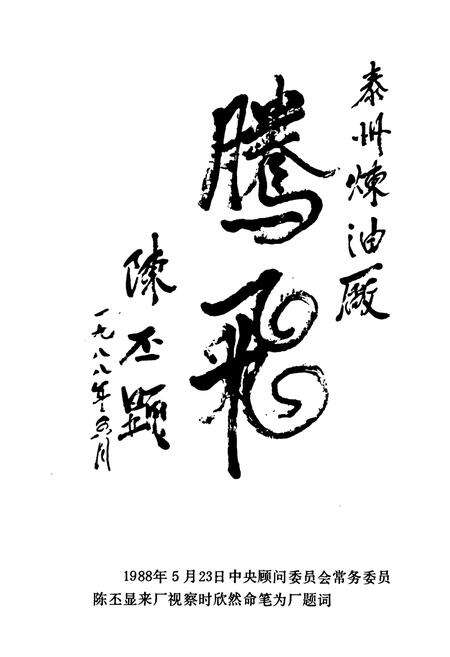 泰州炼油厰
腾飞
陳丕顯
一九八八年五月
1988年5月23日中央顾问委员会常务委员
陈丕显来厂视察时欣然命笔为厂题词